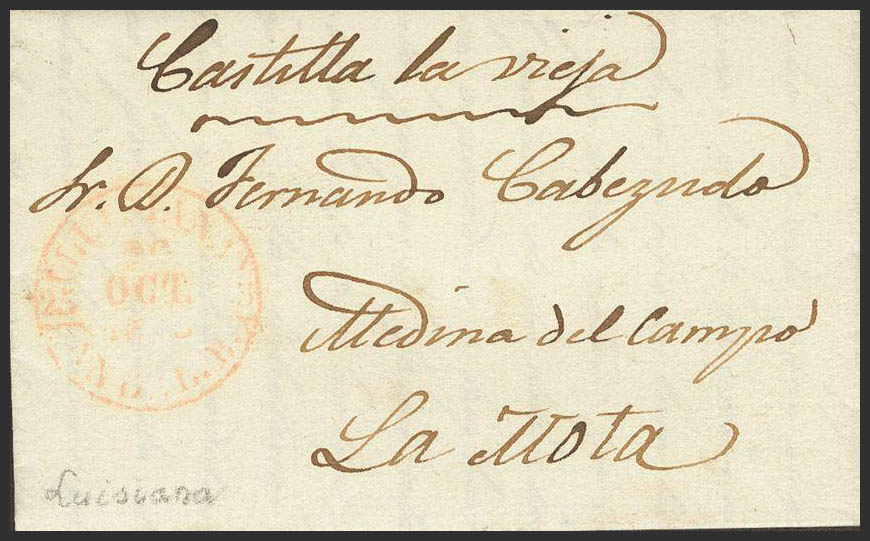 Castilla la vieja
Sr. D. Fernando Cabezudo
OCT.
Medina del Campo
La Mota
Luisiana